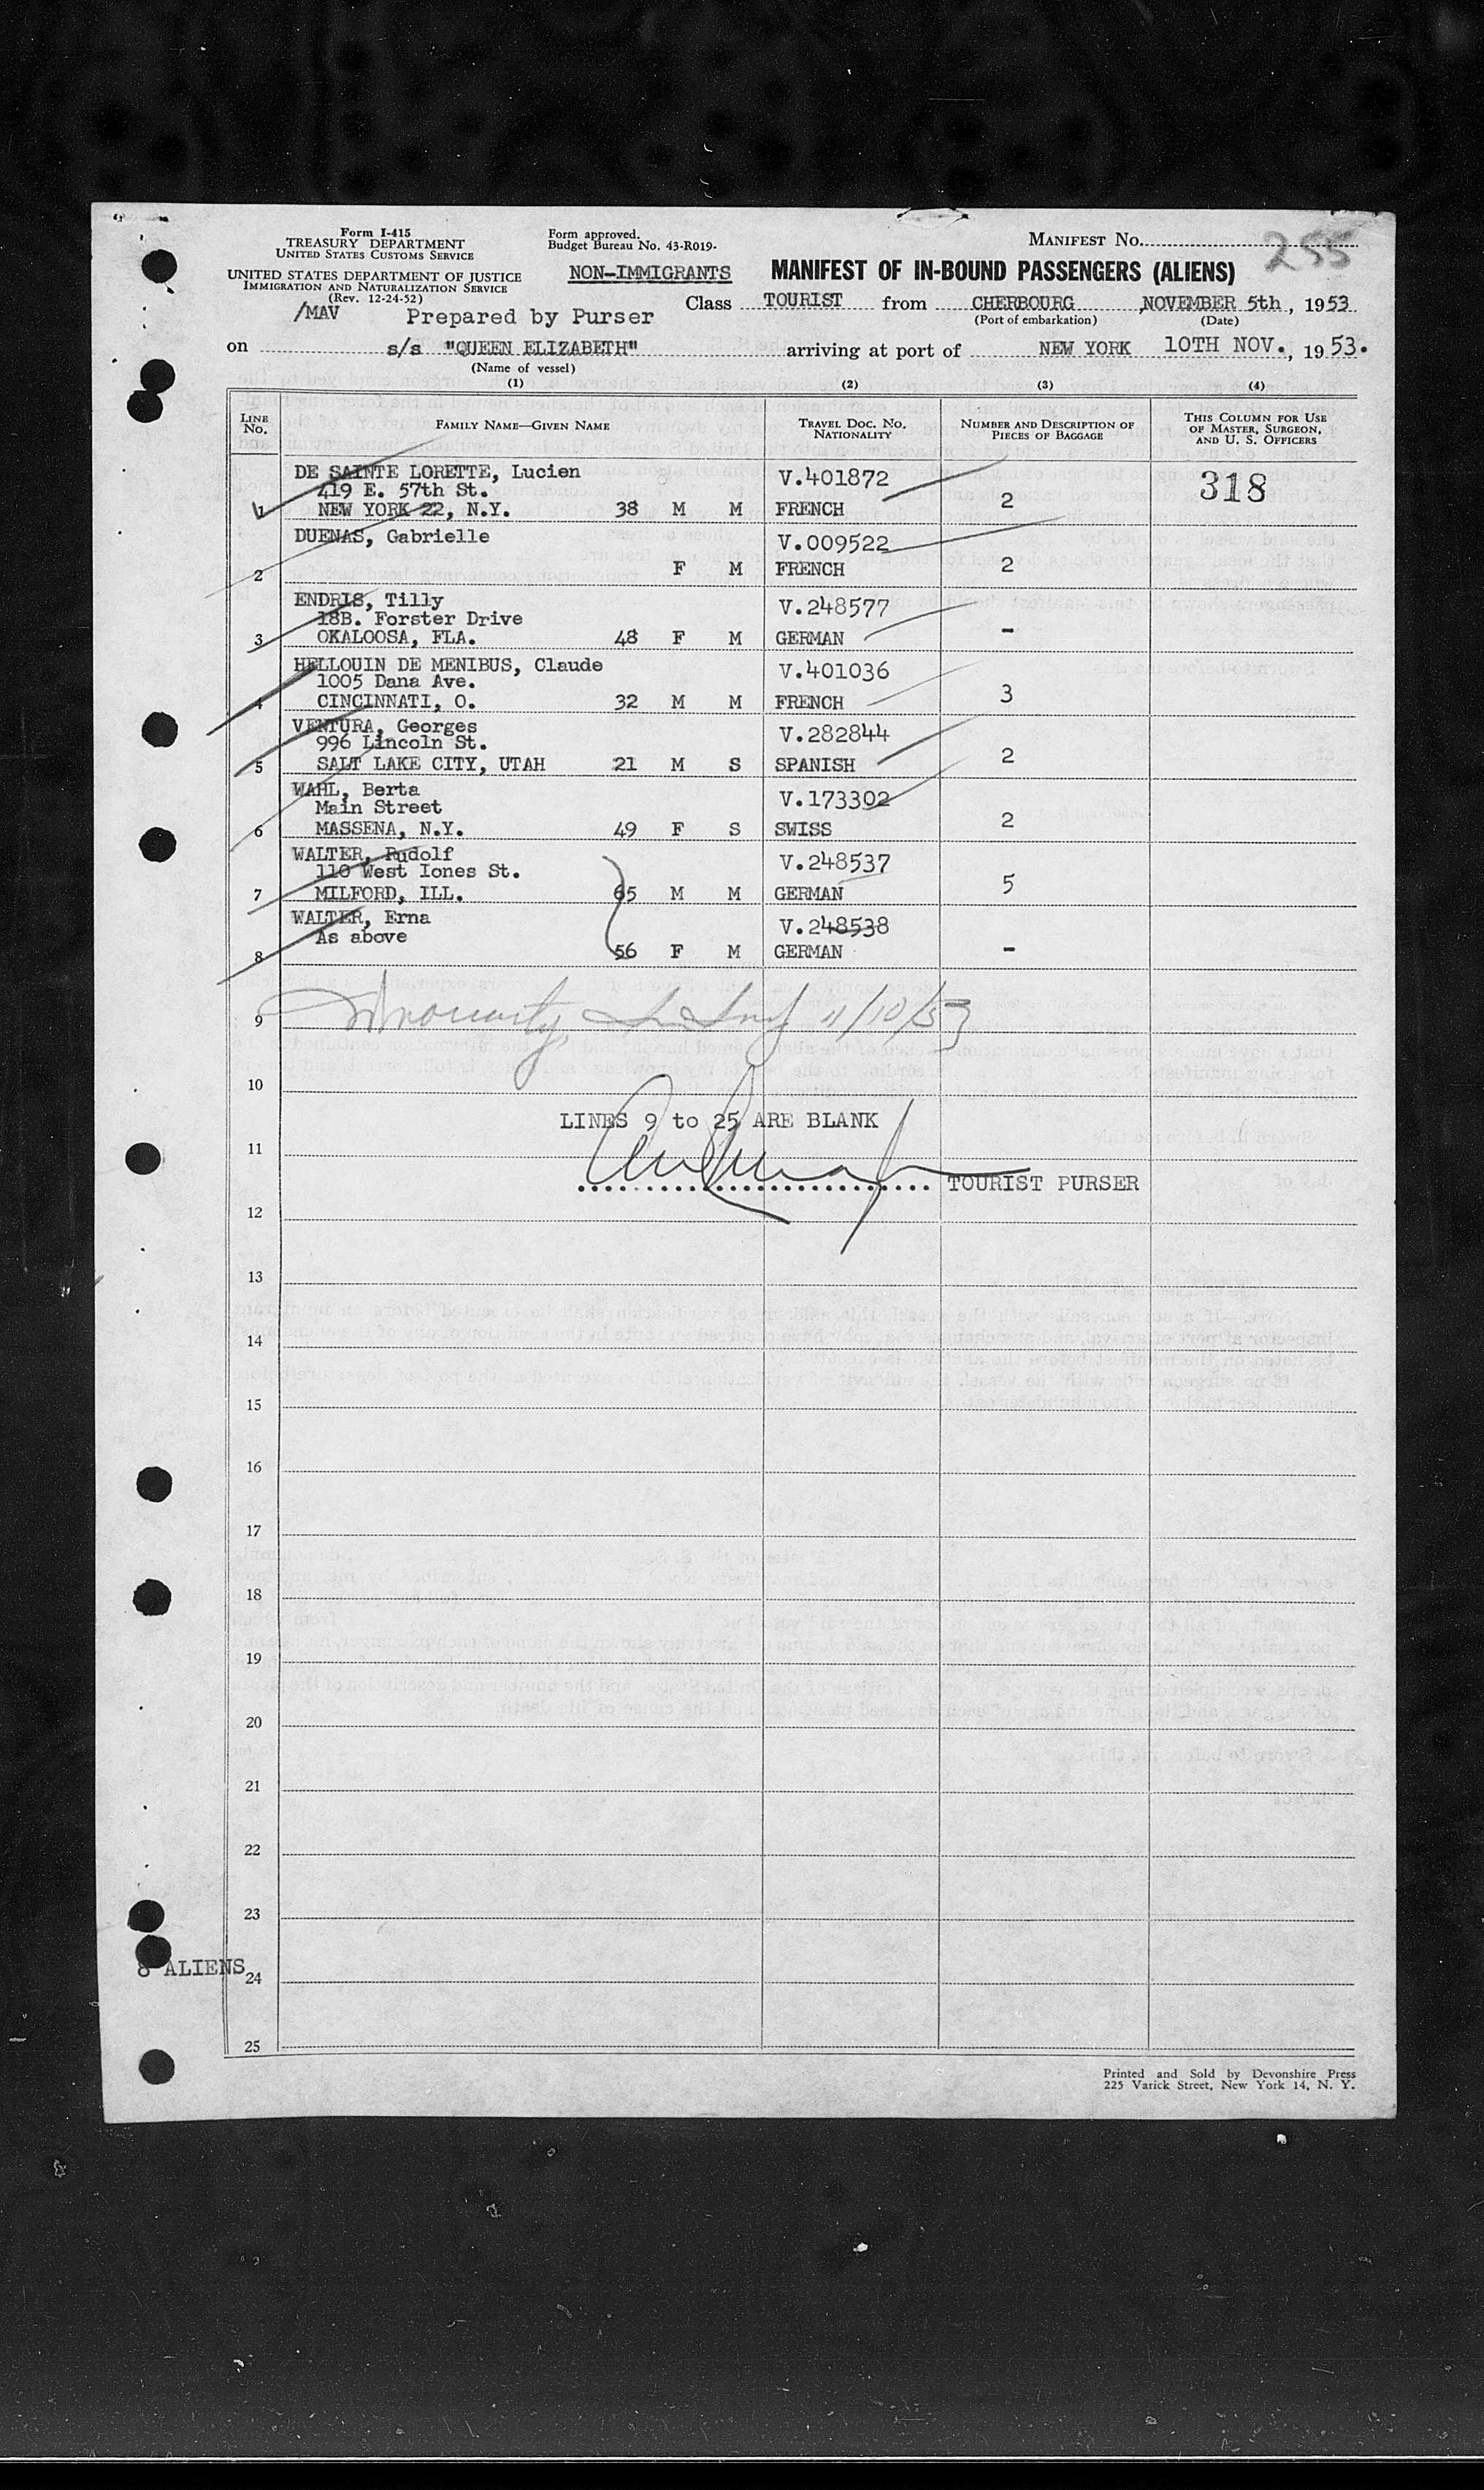 Form I-415
TREASURY DEPARTMENT
UNITED STATES CUSTOMS SERVICE
UNITED STATES DEPARTMENT OF JUSTICE
IMMIGRATION AND NATURALIZATION SERVICE
(Rev. 12-24-52)
Form approved.
Budget Bureau No. 43-R019.
MANIFEST No. 255
NON-IMMIGRANTS MANIFEST OF IN-BOUND PASSENGERS (ALIENS)
/MAV Prepared by Purser
Class TOURIST from CHERBOURG, NOVEMBER 5th, 1953
(Port of embarkation) (Date)
on s/s "QUEEN ELIZABETH" arriving at port of NEW YORK 10TH NOV., 1953.
(Name of vessel)
(1) (2) (3) (4)
LINE No. FAMILY NAME—GIVEN NAME TRAVEL DOC. NO. NATIONALITY NUMBER AND DESCRIPTION OF PIECES OF BAGGAGE THIS COLUMN FOR USE OF MASTER, SURGEON, AND U. S. OFFICERS
DE SAINTE LORETTE, Lucien V.401872 318
419 E. 57th St.
1 NEW YORK 22, N.Y. 38 M M FRENCH 2
DUENAS, Gabrielle V.009522
2 F M FRENCH 2
ENDRIS, Tilly V.248577
18B. Forster Drive
3 OKALOOSA, FLA. 48 F M GERMAN -
HELLOUIN DE MENIBUS, Claude V.401036
1005 Dana Ave.
4 CINCINNATI, O. 32 M M FRENCH 3
VENTURA, Georges V.282844
996 Lincoln St.
5 SALT LAKE CITY, UTAH 21 M S SPANISH 2
WAHL, Berta V.173302
Main Street
6 MASSENA, N.Y. 49 F S SWISS 2
WALTER, Rudolf V.248537
110 West Iones St.
7 MILFORD, ILL. 65 M M GERMAN 5
WALTER, Erna V.248538
As above
8 56 F M GERMAN -
9 11/10/53
10
LINES 9 to 25 ARE BLANK
11
TOURIST PURSER
12
13
14
15
16
17
18
19
20
21
22
23
8 ALIENS
24
25
Printed and Sold by Devonshire Press
225 Varick Street, New York 14, N. Y.